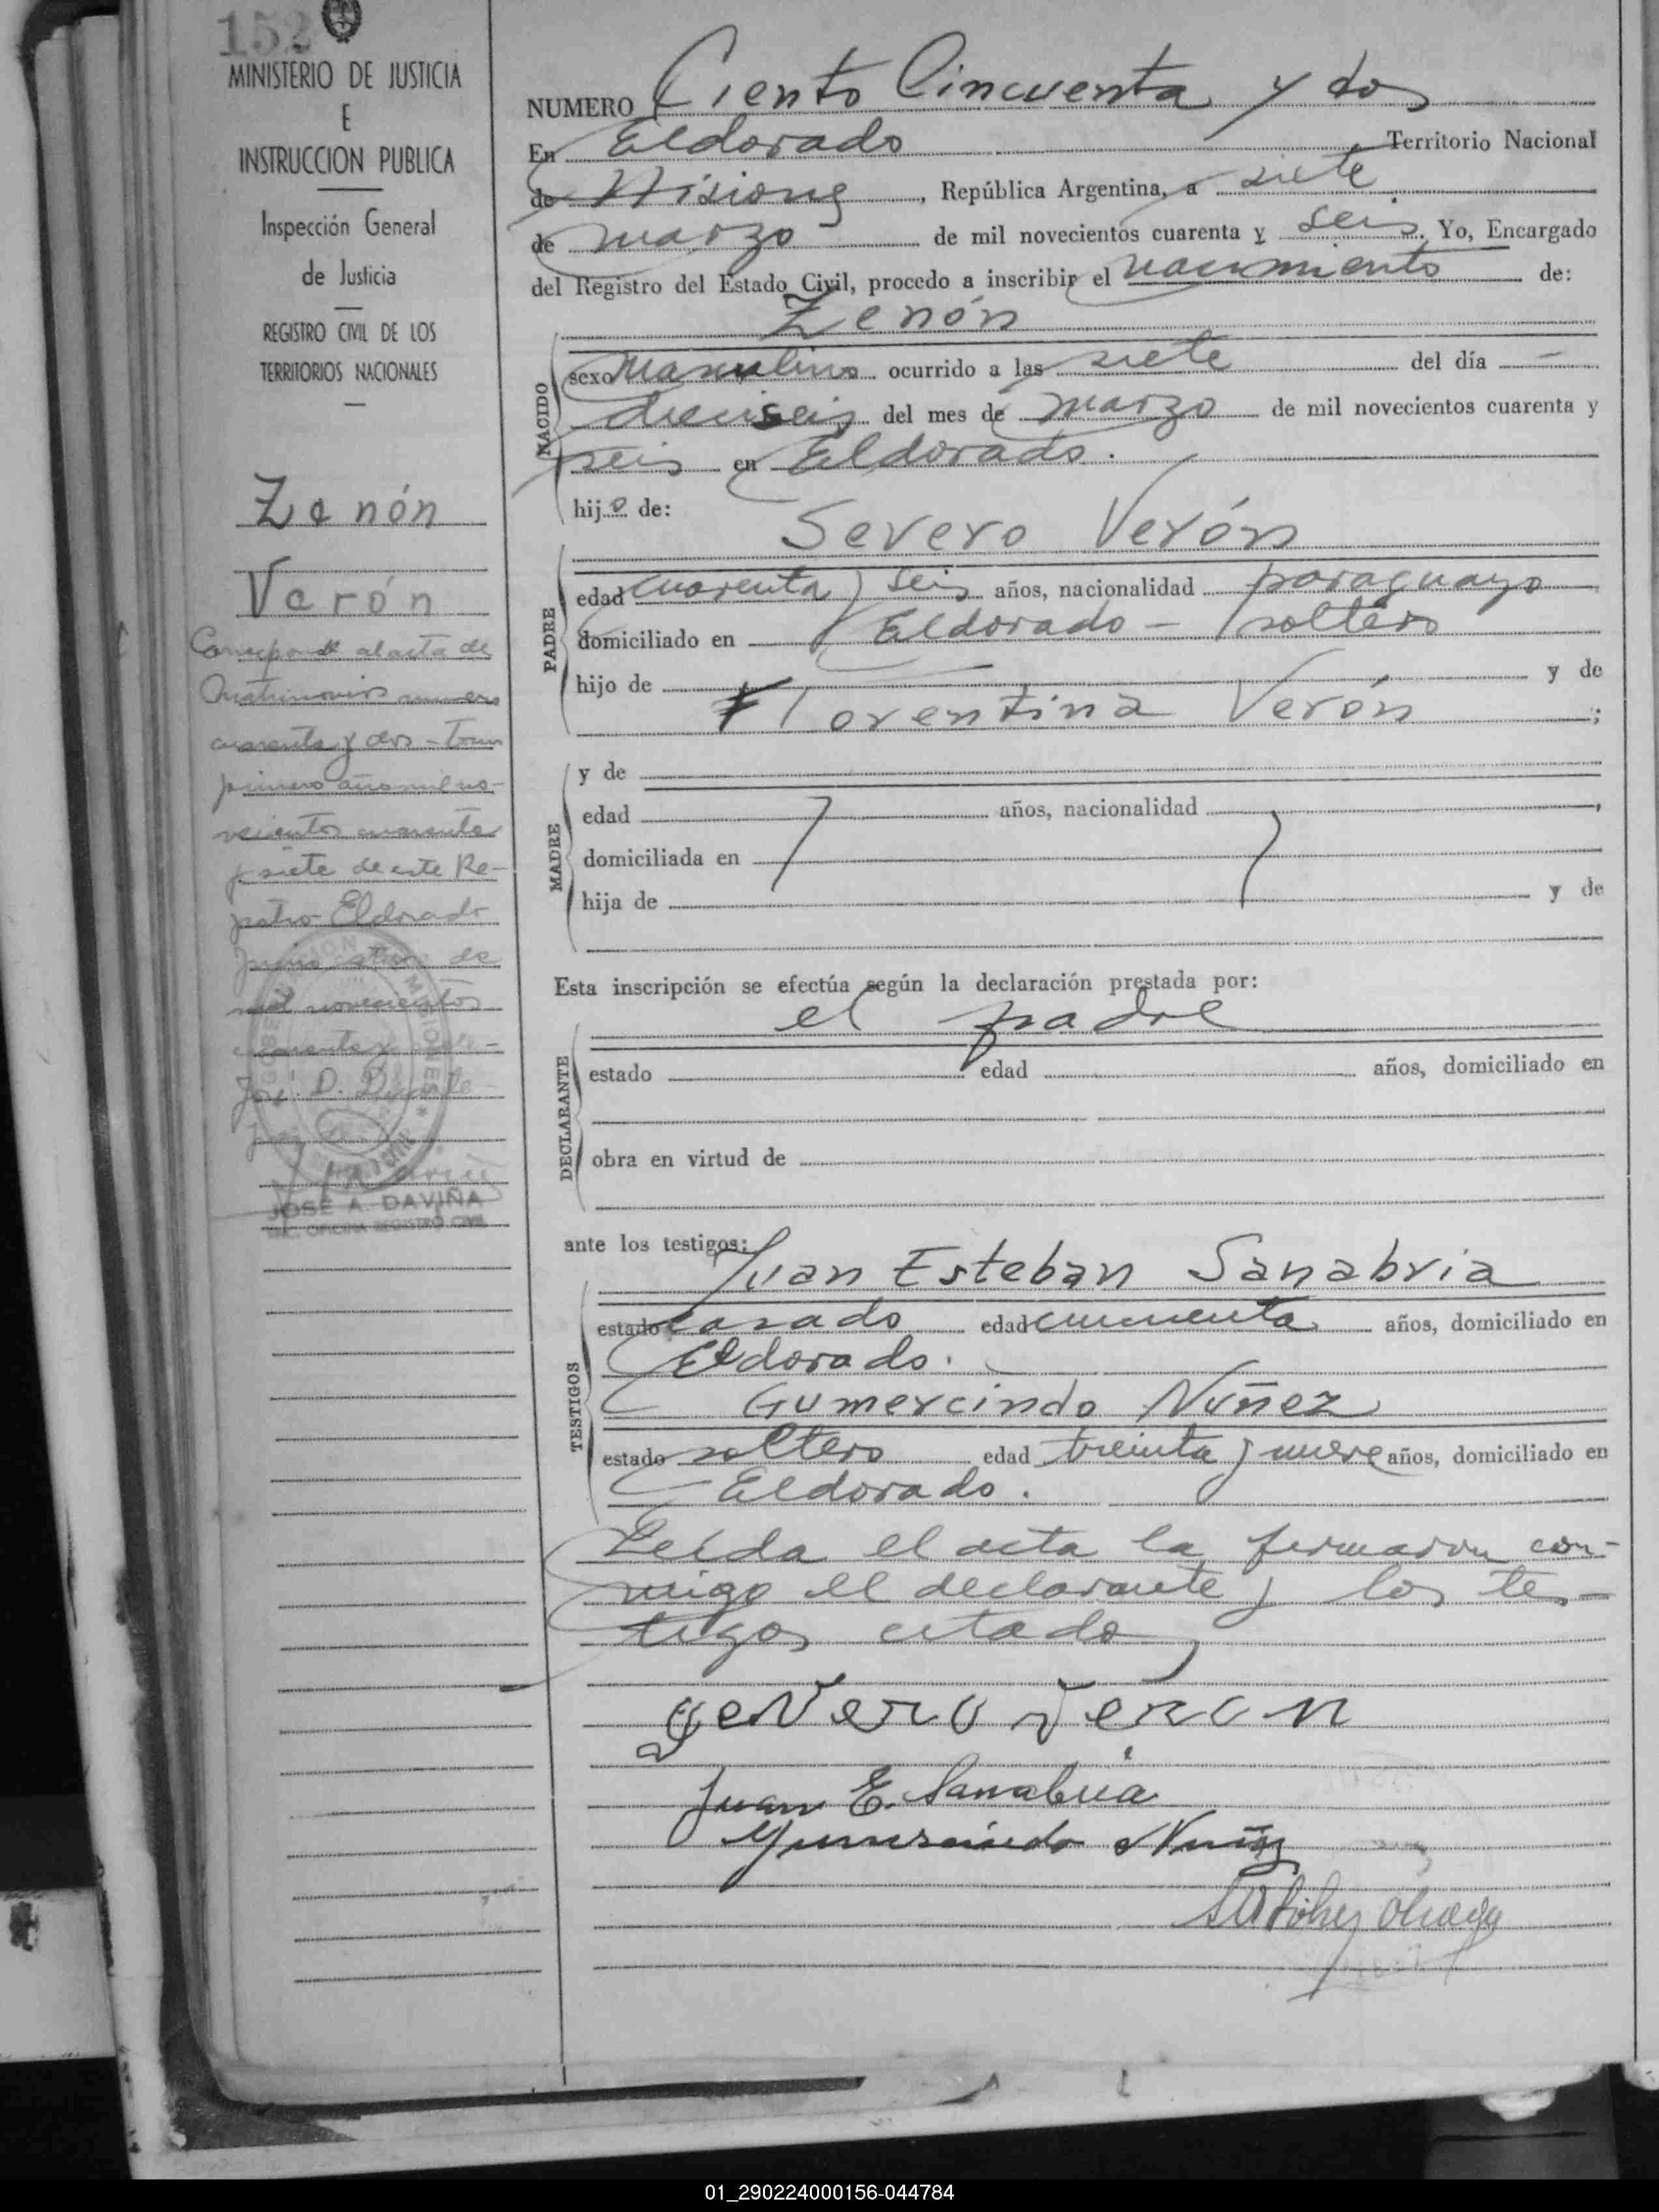 152
MINISTERIO DE JUSTICIA
E
INSTRUCCION PUBLICA
Inspección General
de Justicia
REGISTRO CIVIL DE LOS
TERRITORIOS NACIONALES
Zenón
Verón
Corresponde al acta de
Matrimonios numero
cuarenta y dos - tomo
primero año mil no-
vecientos cuarenta
y siete de este Re-
gistro Eldorado
Junio de
mil novecientos
cuarenta y
José D. Duarte
JOSÉ A. DAVIÑA
OFICINA REGISTRO CIVIL
NUMERO Ciento Cincuenta y dos
En Eldorado Territorio Nacional
de Misiones, República Argentina, a siete
de marzo de mil novecientos cuarenta y seis. Yo, Encargado
del Registro del Estado Civil, procedo a inscribir el nacimiento de:
Zenón
NACIDO
sexo Masculino ocurrido a las siete del día —
dieciseis del mes de marzo de mil novecientos cuarenta y
seis en Eldorado.
hijo de:
Severo Verón
PADRE
edad cuarenta y seis años, nacionalidad paraguayo
domiciliado en Eldorado - soltero
hijo de y de
Florentina Verón ;
MADRE
y de
edad años, nacionalidad ,
domiciliada en
hija de y de
Esta inscripción se efectúa según la declaración prestada por:
el padre
DECLARANTE
estado edad años, domiciliado en
obra en virtud de
ante los testigos:
Juan Esteban Sanabria
TESTIGOS
estado casado edad cincuenta años, domiciliado en
Eldorado.
Gumercindo Núñez
estado soltero edad treinta y nueve años, domiciliado en
Eldorado.
Leída el acta la firmaron con-
migo el declarante y los tes-
tigos citados
severo veron
Juan E. Sanabria
Gumersindo Nuñez
01_290224000156-044784